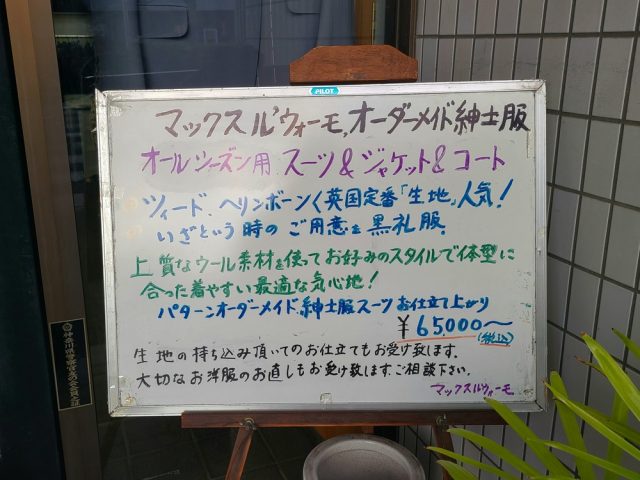 PILOT
マックスル'ウォーモ,オーダーメイド紳士服
オールシーズン用.スーツ&ジャケット&コート
ツィード.ヘリンボーンく英国定番「生地」人気!
いざという時のご用意を黒礼服.
上質なウール素材を使ってお好みのスタイルで体型に
合った着やすい最適な気心地!
パターンオーダーメイド紳士服スーツお仕立て上がり
¥65,000〜
(税込)
生地の持ち込み頂いてのお仕立てもお受け致します.
大切なお洋服のお直しもお受け致します.ご相談下さい.
マックスルウォーモ.